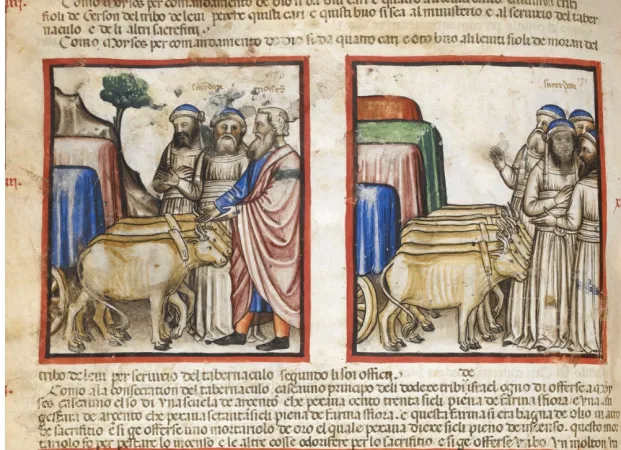 Como Moyses per comandamento de dio
fioli de Gerson del tribo de leui perche quisti cari e quisti buo si sea al ministerio et al seruixio del taber
naculo e de li altri sacrifitij.
Como Moyses per comandamento de Dio si da quatro cari e oto buo ali leuiti fioli de merari del
sacerdoti moises
sacerdoti
tribo de leui per seruixio del tabernaculo segundo li soi officij. de
Como a la consecration del tabernaculo cascauno principo deli dodexe tribi israel ogno di offerse a moy
ses cascauno el so di una scuela de arzento che pexaua cento trenta sicli piena de farina sfiora e una in
gestara de arzento che pexaua setanta sicli piena de farina sfiora. e questa farina si era bagna de olio in atto
de sacrifitio e si ge offerse uno mortariolo de oro el quale pexaua diexe sicli pieno de incenso. questo mor
tariolo fo per pestare lo incenso e le altre cosse odorifere per lo sacrifitio e si ge offerse un bo un molton un